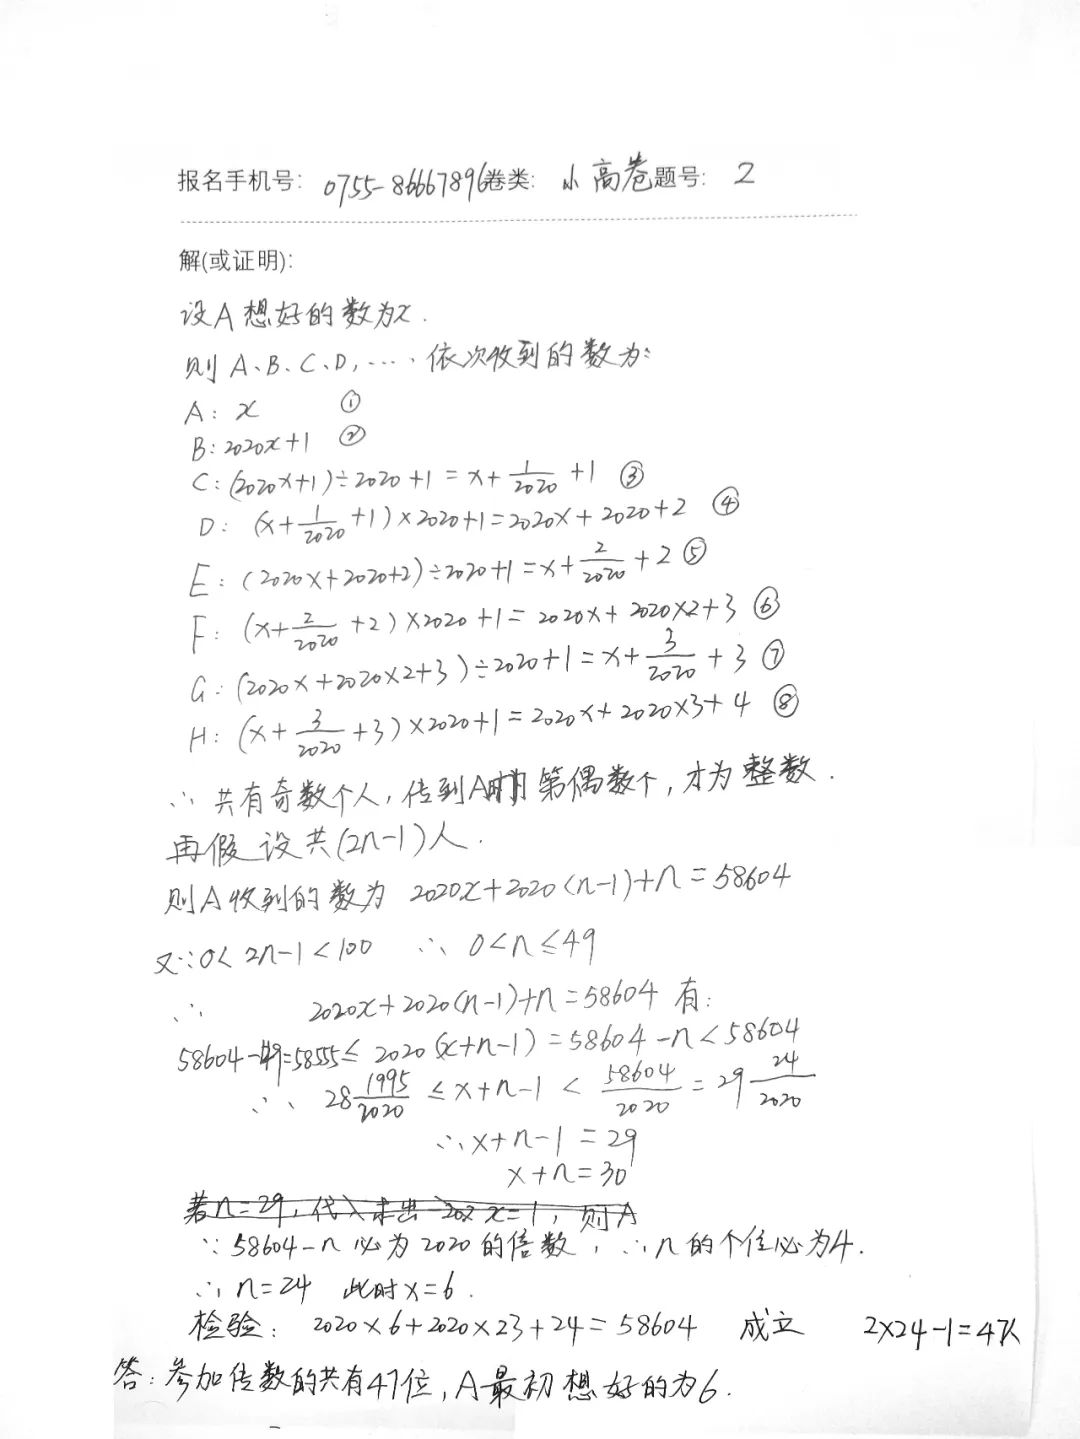 报名手机号: 0755-86667896卷类: 小高卷题号: 2
解(或证明):
设A想好的数为x.
则A、B、C、D,····依次收到的数为:
A: x ①
B: 2020x+1 ②
C: (2020x+1)÷2020+1=x+1/2020+1 ③
D: (x+1/2020+1)×2020+1=2020x+2020+2 ④
E: (2020x+2020+2)÷2020+1=x+2/2020+2 ⑤
F: (x+2/2020+2)×2020+1=2020x+2020×2+3 ⑥
G: (2020x+2020×2+3)÷2020+1=x+3/2020+3 ⑦
H: (x+3/2020+3)×2020+1=2020x+2020×3+4 ⑧
∴共有奇数个人,传到A时为第偶数个,才为整数.
再假设共(2n-1)人.
则A收到的数为 2020x+2020(n-1)+n=58604
又∵0<2n-1<100 ∴0<n≤49
∴ 2020x+2020(n-1)+n=58604有:
58604-49=58555≤2020(x+n-1)=58604-n<58604
∴ 28 1995/2020 ≤x+n-1< 58604/2020 =29 24/2020
∴x+n-1=29
x+n=30
若n=29,代入求出 x=1,则A
∵58604-n必为2020的倍数,∴n的个位必为4.
∴n=24 此时x=6.
检验: 2020×6+2020×23+24=58604 成立 2×24-1=47人
答:参加传数的共有47位,A最初想好的为6.